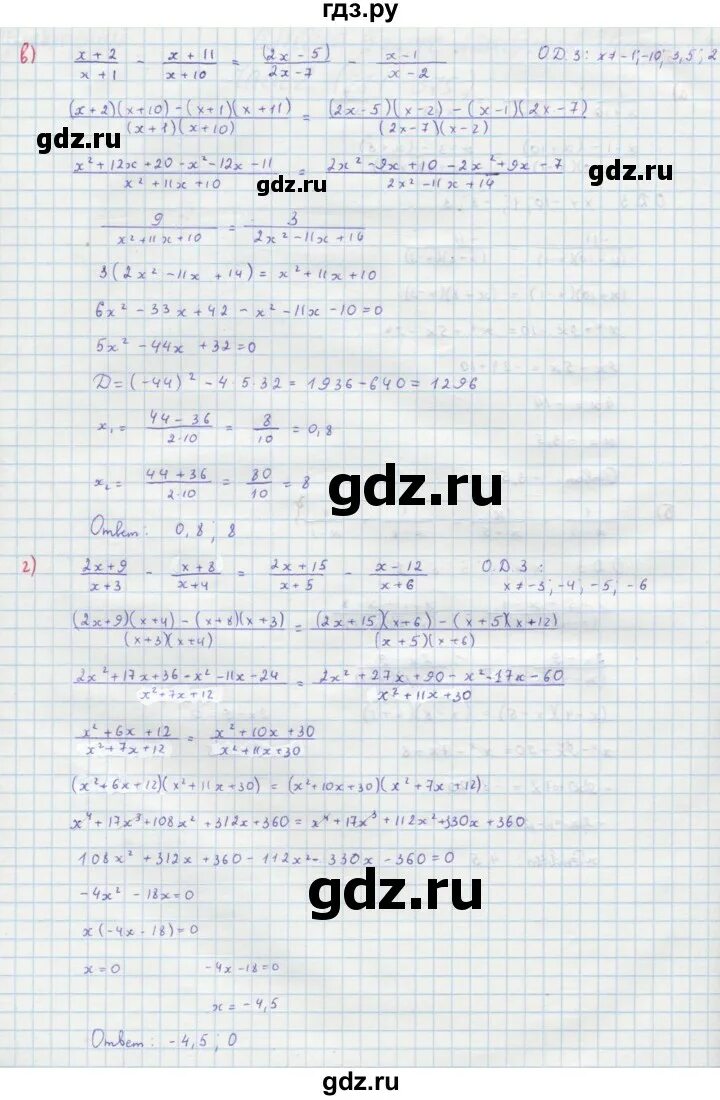 гдз.ру
в) (x+2)/(x+1) - (x+11)/(x+10) = (2x-5)/(2x-7) - (x-1)/(x-2) О.Д.З: x≠-1; -10; 3,5; 2
((x+2)(x+10)-(x+1)(x+11))/((x+1)(x+10)) = ((2x-5)(x-2)-(x-1)(2x-7))/((2x-7)(x-2))
gdz.ru gdz.ru
(x²+12x+20-x²-12x-11)/(x²+11x+10) = (2x²-9x+10-2x²+9x-7)/(2x²-11x+14)
gdz.ru gdz.ru
9/(x²+11x+10) = 3/(2x²-11x+14)
3(2x²-11x+14) = x²+11x+10
6x²-33x+42-x²-11x-10=0
5x²-44x+32=0
D=(-44)²-4·5·32=1936-640=1296
x₁= (44-36)/(2·10) = 8/10 = 0,8
x₂= (44+36)/(2·10) = 80/10 = 8
gdz.ru
Ответ: 0,8; 8
г) (2x+9)/(x+3) - (x+8)/(x+4) = (2x+15)/(x+5) - (x-12)/(x+6) О.Д.З:
x≠-3; -4; -5; -6
((2x+9)(x+4)-(x+8)(x+3))/((x+3)(x+4)) = ((2x+15)(x+6)-(x+5)(x+12))/((x+5)(x+6))
(2x²+17x+36-x²-11x-24)/(x²+7x+12) = (2x²+27x+90-x²-17x-60)/(x²+11x+30)
(x²+6x+12)/(x²+7x+12) = (x²+10x+30)/(x²+11x+30)
(x²+6x+12)(x²+11x+30) = (x²+10x+30)(x²+7x+12)
x⁴+17x³+108x²+312x+360=x⁴+17x³+112x²+330x+360
108x²+312x+360-112x²-330x-360=0
-4x²-18x=0
gdz.ru
x(-4x-18)=0
x=0 -4x-18=0
x=-4,5
Ответ: -4,5; 0
gdz.ru